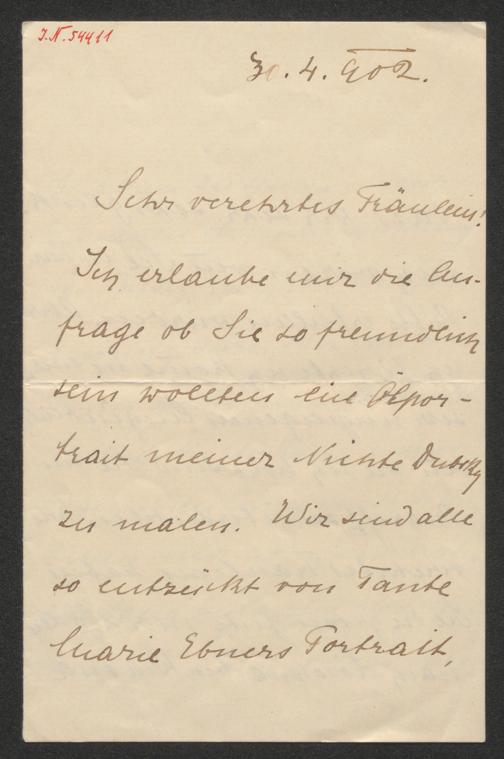 J.N. 54411
30. 4. 902.
Sehr verehrtes Fräulein!
Ich erlaube mir die An-
frage ob Sie so freundlich
sein wollten ein Ölpor-
trait meiner Nichte Dubsky
zu malen. Wir sind alle
so entzückt von Tante
Marie Ebners Portrait,